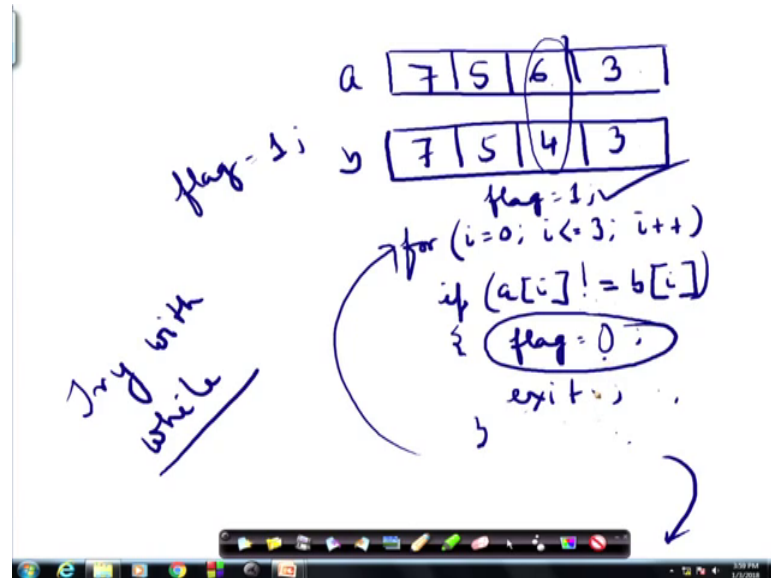 a 7 5 6 3
b 7 5 4 3
flag = 1;
flag = 1;
for (i=0; i<=3; i++)
if (a[i] != b[i])
{ flag = 0;
exit;
}
Try with
while
3:59 PM
1/3/2018